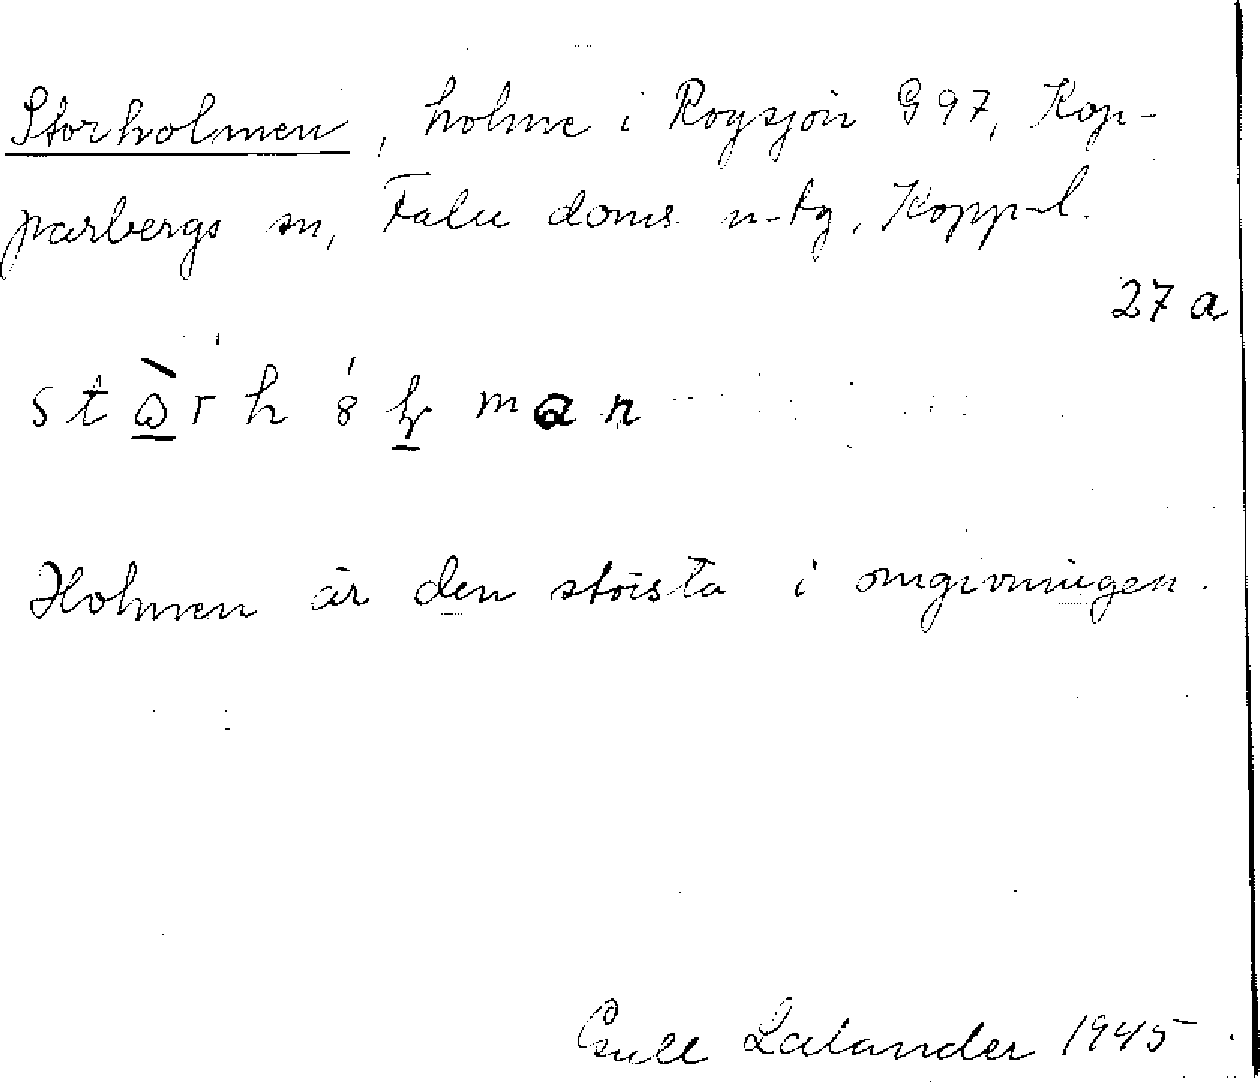 Storholmen, holme i Rogsjön G 97, Kop-
parbergs sn, Falu doms n-tg, Kopp-l.
27 a
Holmen är den största i omgivningen.
Lalander 1945